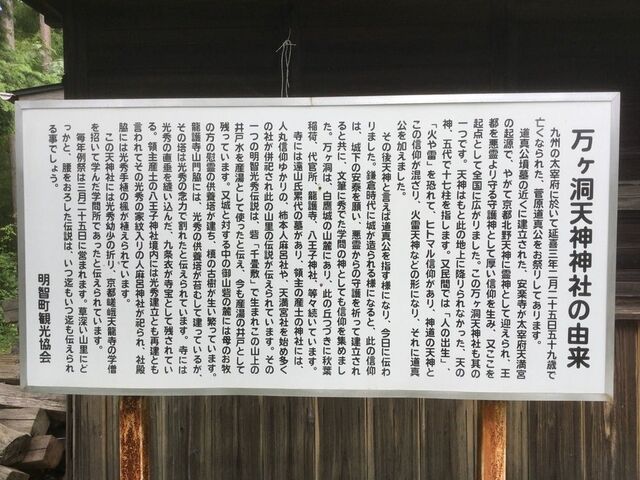 万ヶ洞天神神社の由来
九州の太宰府に於いて延喜三年二月二十五日五十九歳で
亡くなられた、菅原道真公をお祭りしてあります。
道真公墳墓の近くに建立された、安楽寺が太宰府天満宮
の起源で、やがて京都北野天神に霊神として迎えられ、王
都を悪霊より守る守護神として厚い信仰を生み、又ここを
起点として全国に広がりました。この万ヶ洞天神社も其の
一つです。天神はもと此の地上に降りられなかった、天の
神、五代で十七柱を指します。又民間では「人の出生」、
「火や雷」を恐れて、ヒトマル信仰があり、神道の天神と
この信仰が混ざり、火雷天神などの形になり、それに道真
公を加えました。
その後天神と言えば道真公を指す様になり、今日に伝わ
りました。鎌倉時代に城が造られる様になると、此の信仰
は、城下の安泰を願い、悪霊からの守護を祈って建立され
ると共に、文筆に秀でた学問の神としても信仰を集めまし
た。万ヶ洞は、白鷹城の山麓にあり、此の丘つづきに秋葉
稲荷、代官所、龍護寺、八王子神社、等々続いています。
寺には遠山氏累代の墓があり、領主の産土の神社には、
人丸信仰ゆかりの、柿本人麻呂社や、天満宮社を始め多く
の社が併祀され此の山里の伝説が伝えられています。その
一つの明智光秀伝説は、砦「千畳敷」で生まれこの山上の
井戸水を産湯として使ったと伝え、今も産湯の井戸として
残っています。又城と対する中の御山砦の麓には母のお牧
の方の慰霊の供養塔が建ち、槙の古樹が生い繁っています。
龍護寺山門脇には、光秀の供養塔が苔むして建っているが、
その塔は光秀の念力で割れたと伝えられています。寺には
光秀の直垂を縫い込んだ、九条衣が寺宝として残されてい
る。領主産土の八王子神社境内には光秀建立とも再建とも
言われてその光秀の家紋入りの人麻呂神社が祀られ、社殿
脇には光秀手植の楓が植えられています。
この天神社には光秀幼少の折り、京都嵯峨天龍寺の学僧
を招いて学んだ学問所であったと伝えられています。
毎年例祭は三月二十五日に営まれます。草深い山里にど
っかと、腰をおろした伝説は、いつ迄もいつ迄も伝えられ
る事でしょう。
明智町観光協会